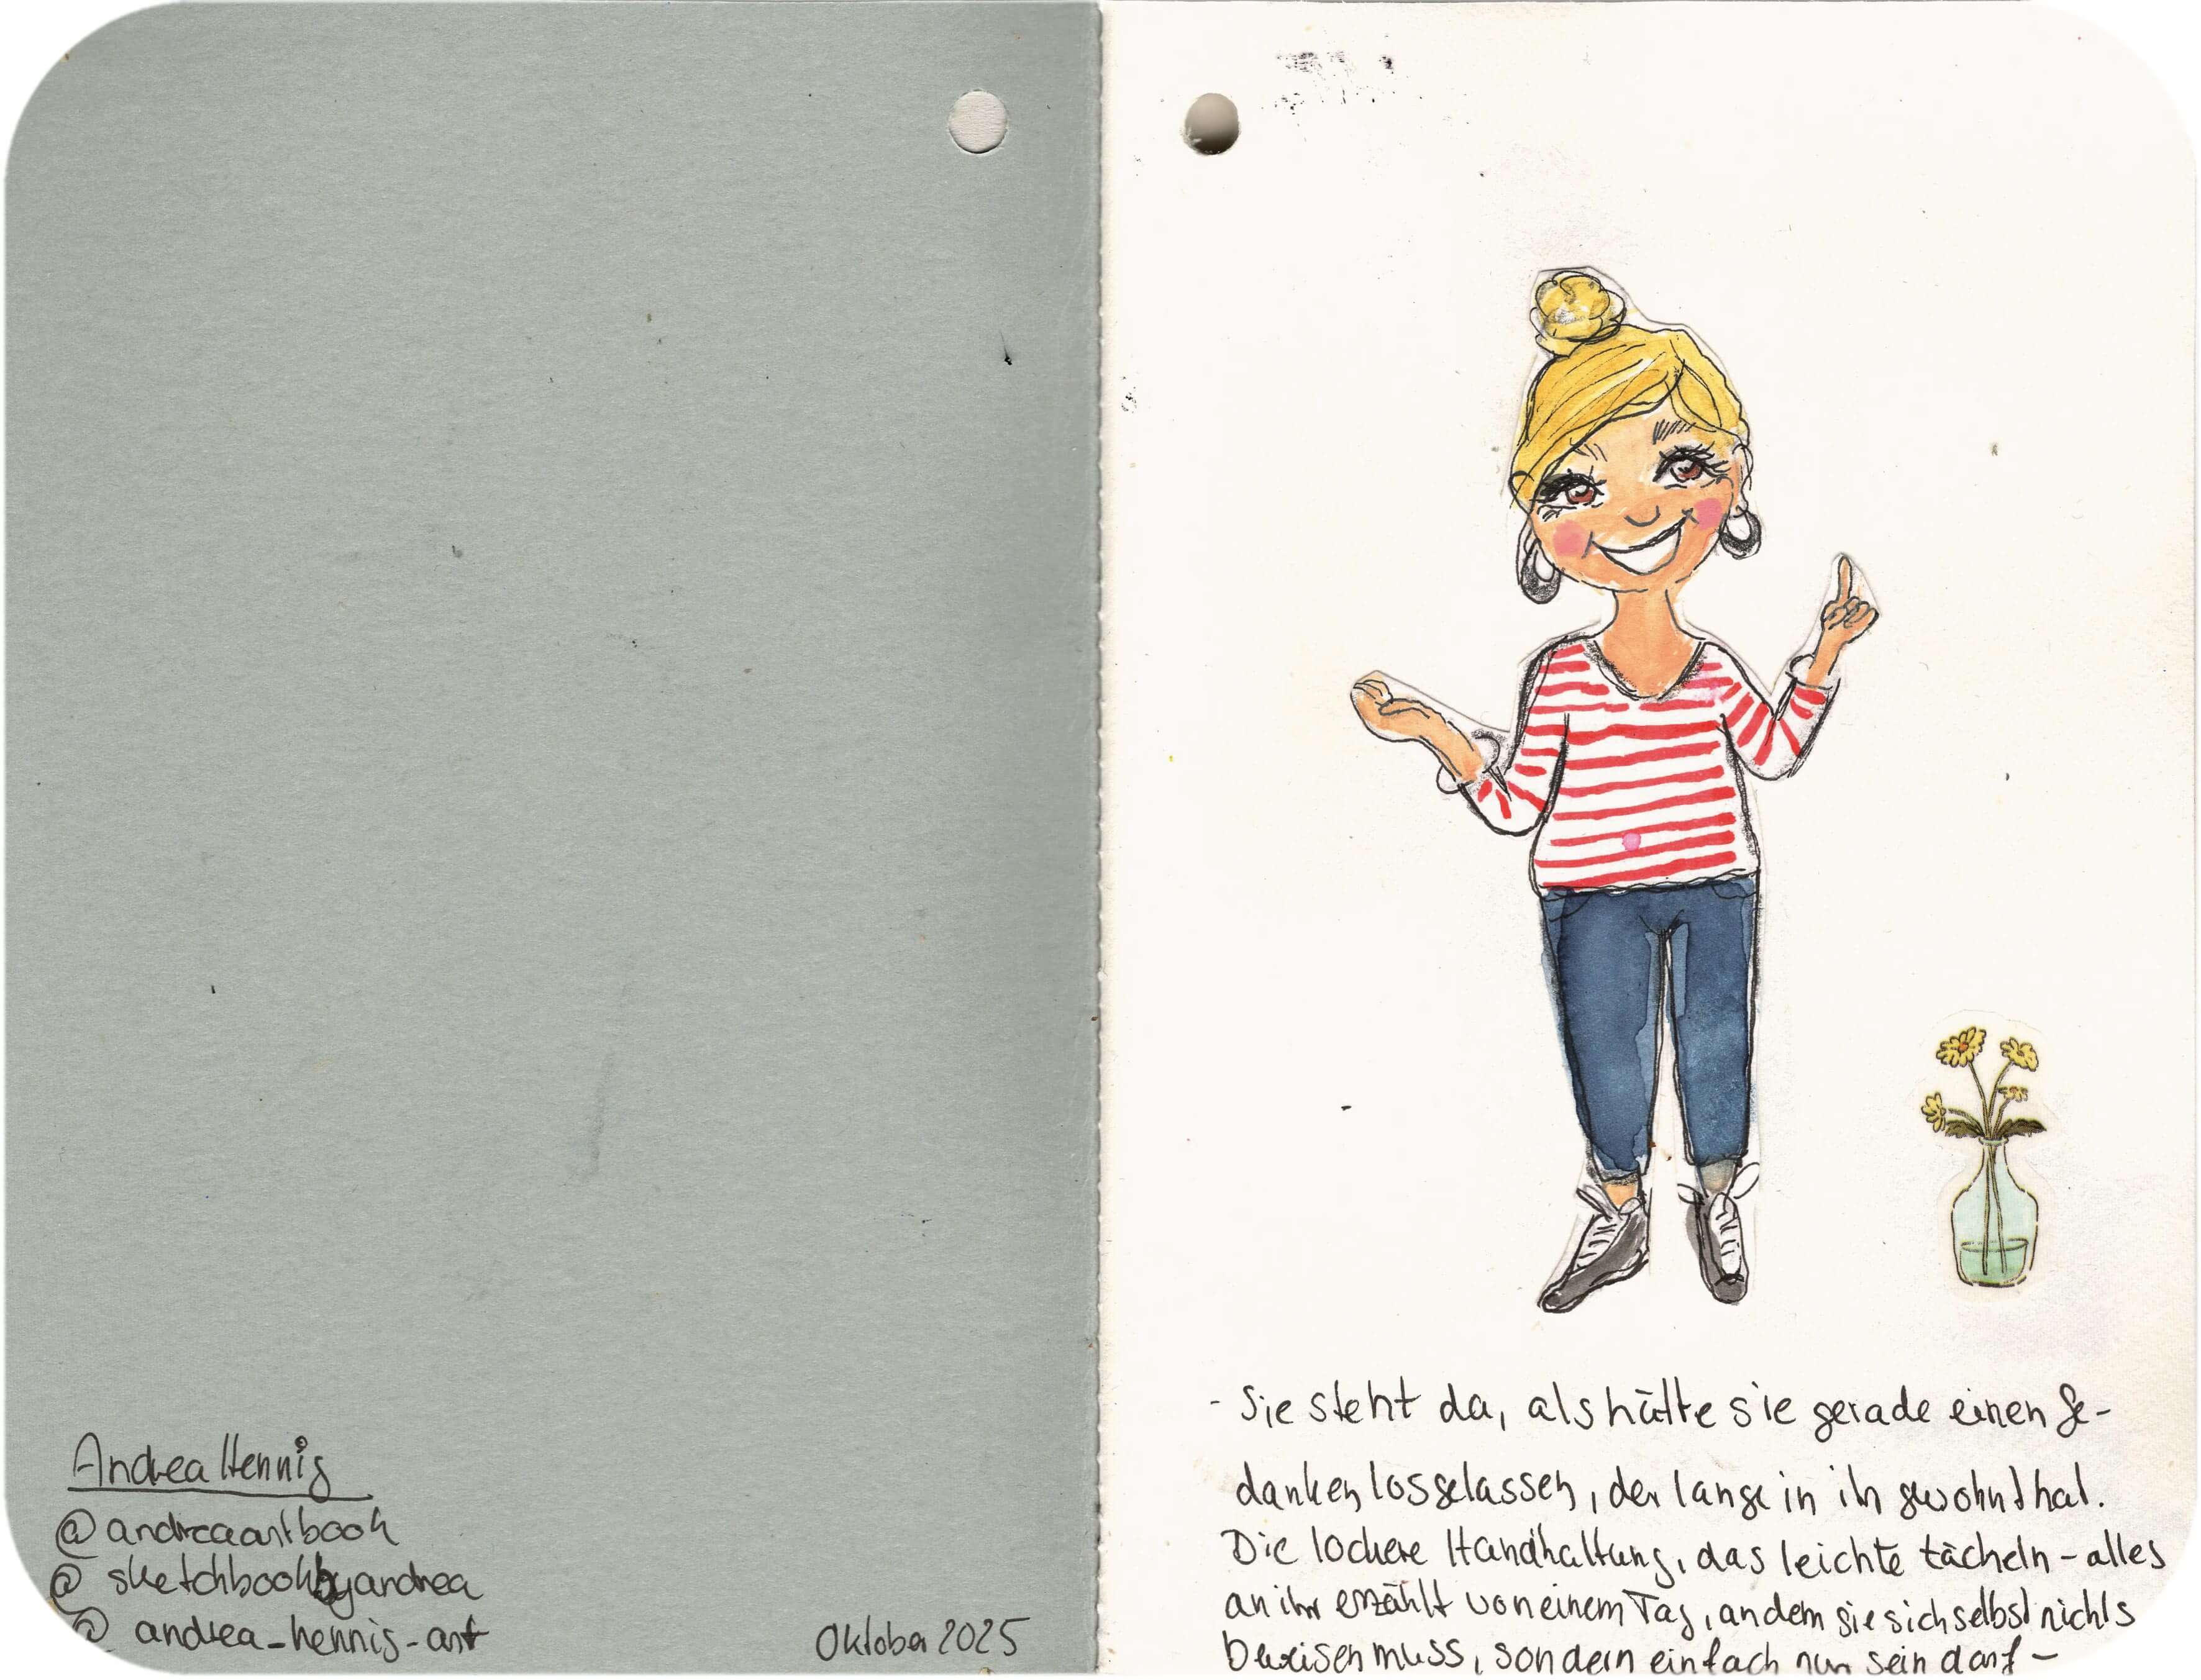 Andrea Hennig
@andreaartbook
@ sketchbookbyandrea
@ andrea_hennig_art
Oktober 2025
- Sie steht da, als hätte sie gerade einen Ge-
danken losgelassen, der lange in ihr gewohnt hat.
Die lockere Handhaltung, das leichte Lächeln - alles
an ihr erzählt von einem Tag, an dem sie sich selbst nichts
beweisen muss, sondern einfach nur sein darf -